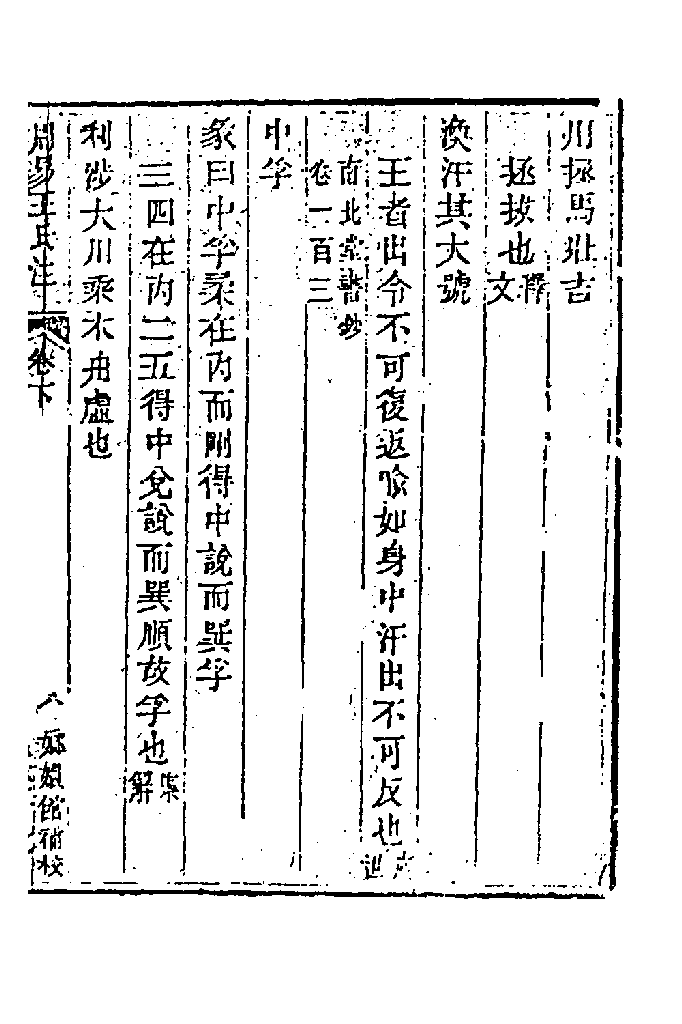 川拯馬壯吉
拯拔也釋文
渙汗其大號
王者出令不可復返喻如身中汗出不可反也
南北堂書鈔
卷一百三
中孚
彖曰中孚柔在內而剛得中說而巽孚
三四在內二五得中兌說而巽順故孚也集解
利涉大川乘木舟虛也
周易王氏注 卷下
八 嫏嬛館補校